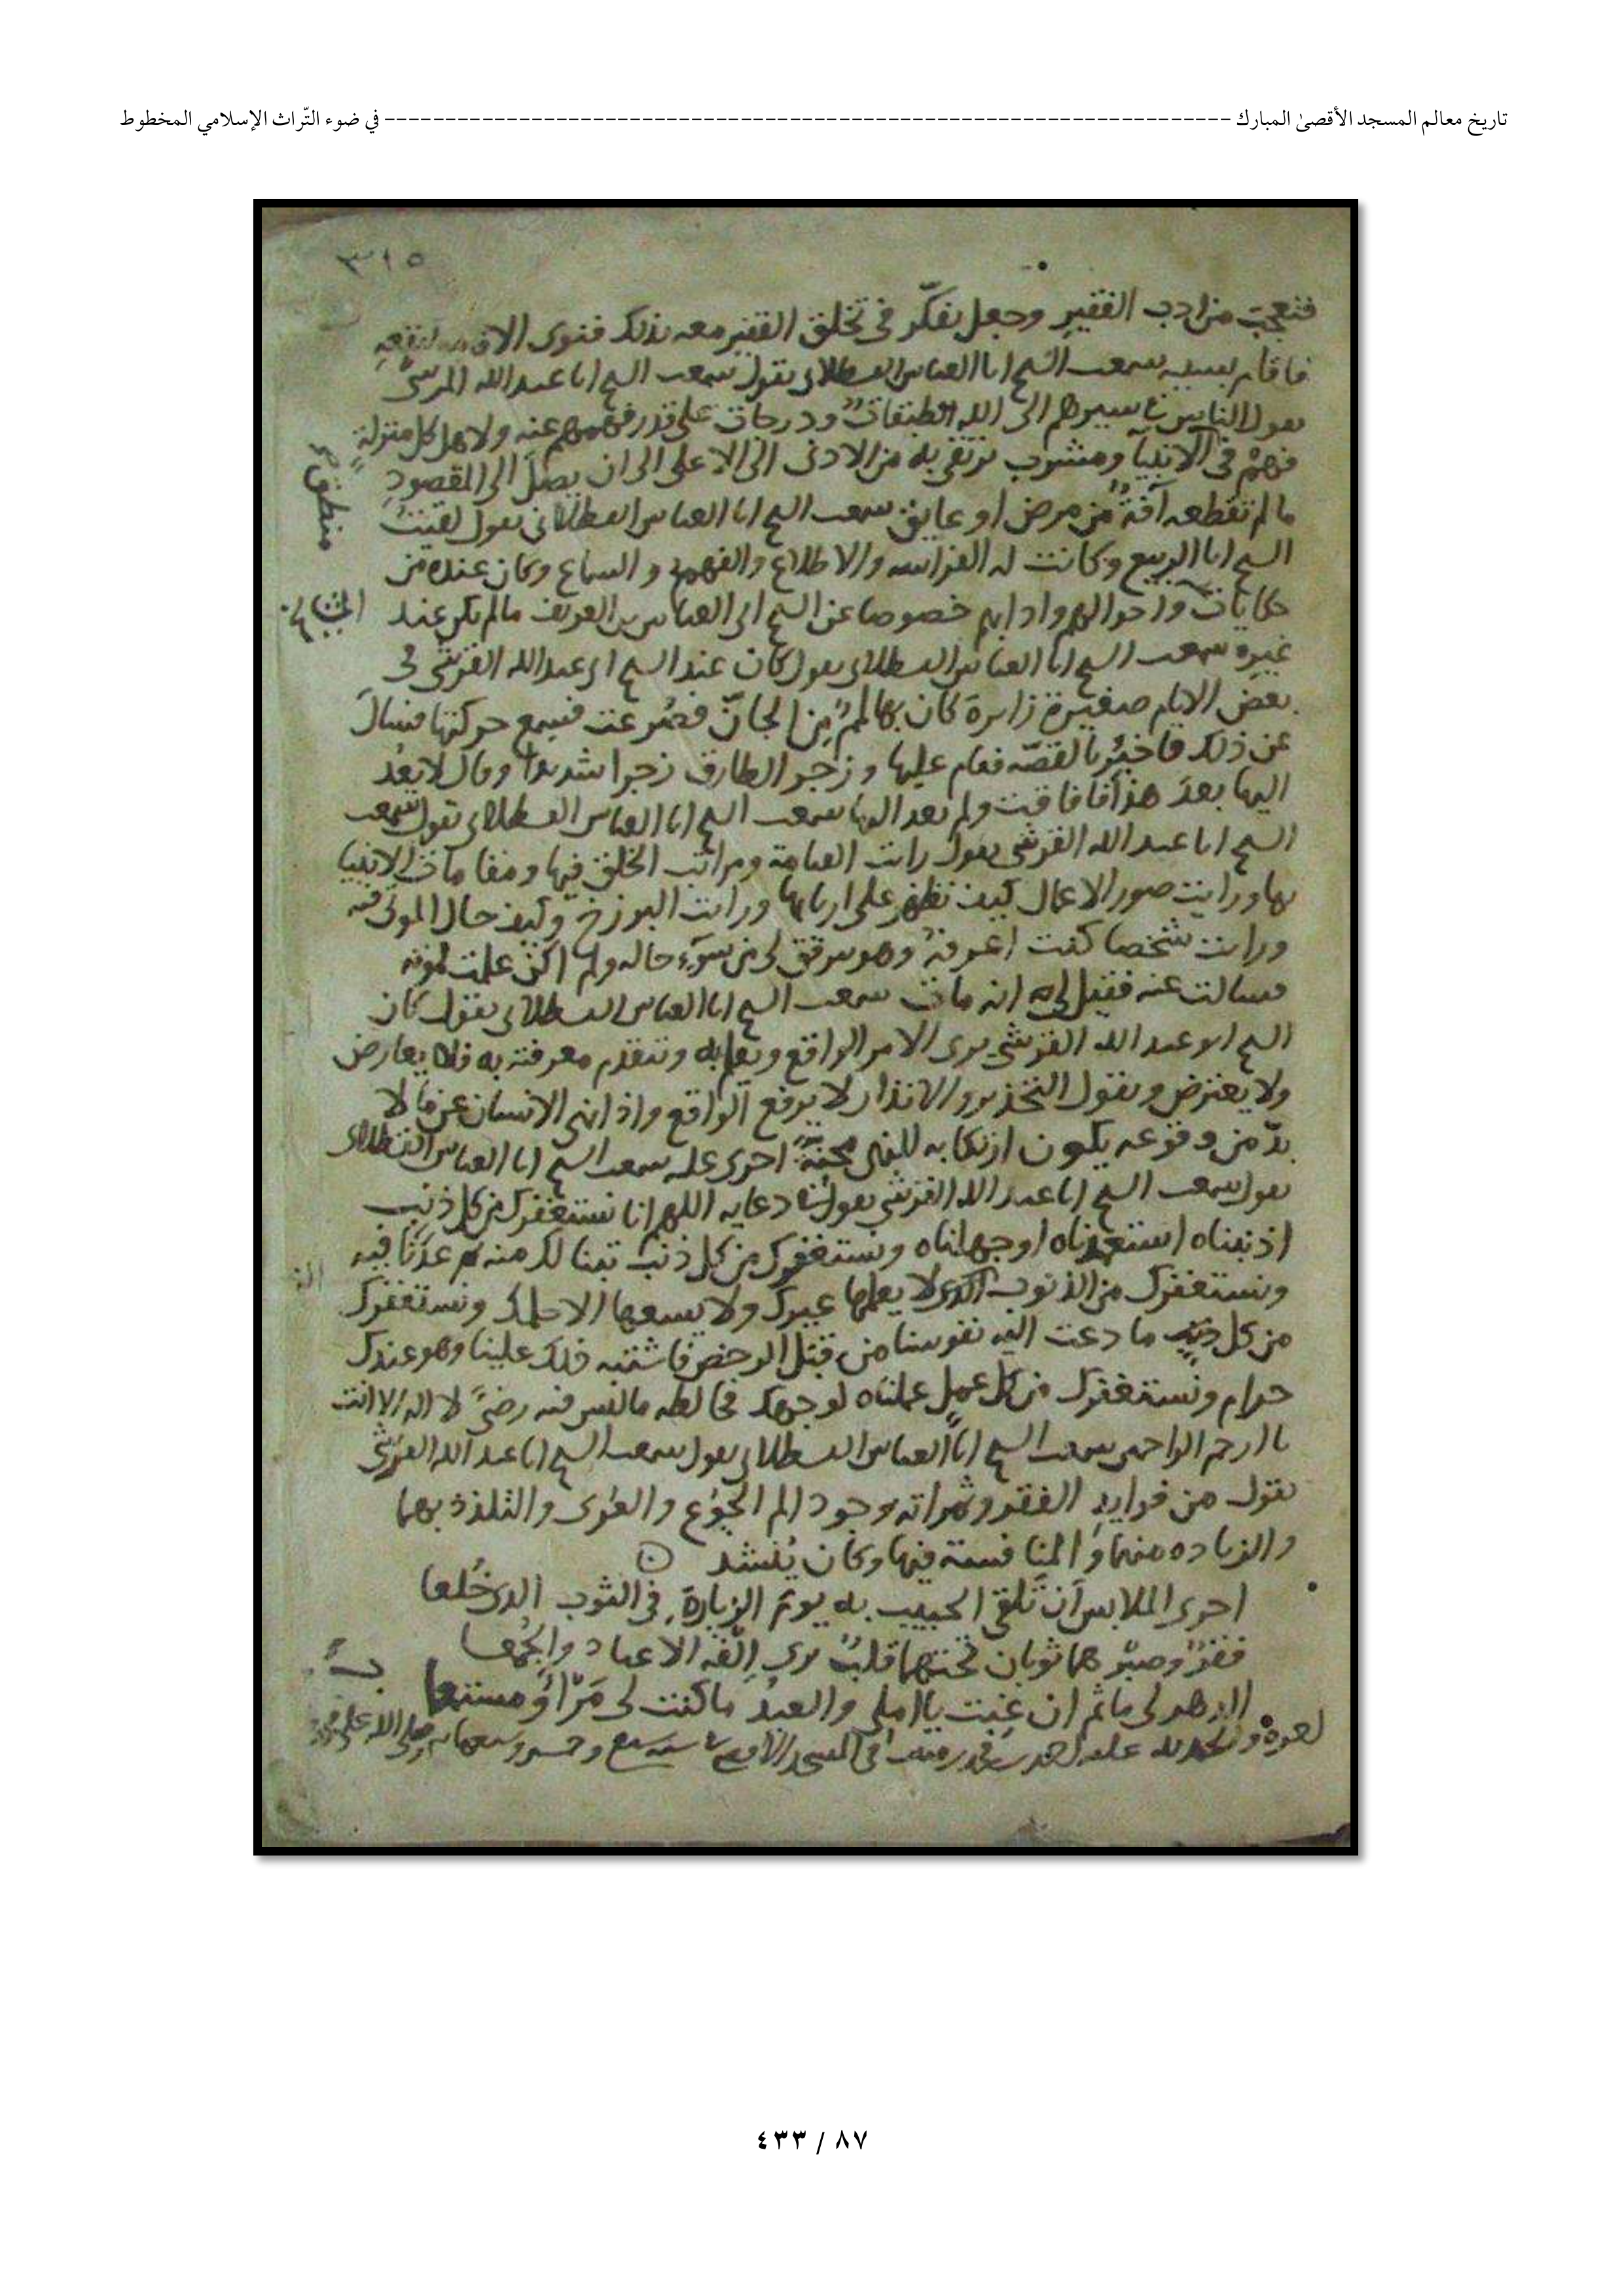 تاريخ معالم المسجد الأقصىٰ المبارك -------------------- في ضوء التّراث الإسلامي المخطوط
٣١٥
فتعجبَ من ادب الفقير وجعل يفكّر في تخلق الفقير معه بذلك فنوى
فاقام بسببه سمعت الشيخ ابا العباس القسطلاني يقول سمعت الشيخ ابا عبد الله
يقول الناس في سيرهم الى الله طبقات ودرجات على قدر فهمهم عنه ولاهل كل منزلة
فهمٌ في ومشرب ترتقي به من الادنى الى الاعلى الى ان يصل الى المقصود
ما لم تقطعه آفةٌ من مرض او عايق سمعت الشيخ ابا العباس القسطلاني يقول لقيت
الشيخ ابا الربيع وكانت له الفراسه والاطلاع والفهم و السماع وكان عنده من
حكايات واحوالهم وادابهم خصوصا عن الشيخ ابي العباس بن العريف مالم يكن عند
المشايخ
غيره سمعت الشيخ ابا العباس القسطلاني يقول كان عند الشيخ ابي عبد الله القرشي في
بعض الايام صغيرة زايرة كان بها لممٌ من الجانّ فصُرعت فسمع حركتها فسال
عن ذلك فاخبر بالقصّه فقام عليها وزجر الطارق زجرا شديدا وقال لا تعدُ
اليها بعدَ هذا فافاقت ولم يعد اليها سمعت الشيخ ابا العباس القسطلاني يقول سمعت
الشيخ ابا عبد الله القرشي يقول رايت القيامة ومراتب الخلق فيها ومقامات الانبيا
بها ورايت صور الاعمال كيف تظهر على اربابها ورايت البرزخ وكيف حال الموتى فيه
ورايت شخصا كنت اعرفه وهو من سوء حاله ولم اكن علمت بموته
فسالت عنه فقيل لي انه مات سمعت الشيخ ابا العباس القسطلاني يقول كان
الشيخ ابو عبد الله القرشي يرى الامر الواقع ويعلم به وتتقدم معرفته به فلا يعارض
ولا يعترض ويقول التحذير والانذار لا يرفع الواقع واذا نهي الانسان عن ما لا
بدّ من وقوعه يكون ارتكابه للنهي محنةً اخرى عليه سمعت الشيخ ابا العباس القسطلاني
يقول سمعت الشيخ ابا عبد الله القرشي يقول في دعايه اللهم انا نستغفرك من كل ذنب
اذنبناه او جهلناه ونستغفرك من كل ذنب تبنا لك منه ثم عدنا فيه
ونستغفرك من الذنوب التي لا يعلمها غيرك ولا يسعها الا حلمك ونستغفرك
من كل ما دعت اليه نفوسنا من قبل الرخص فاشتبه ذلك علينا وهو عندك
حرام ونستغفرك من كل عمل عملناه لوجهك فخالطه ما ليس فيه رضىً لا اله الا انت
يا ارحم الراحمين سمعت الشيخ ابا العباس القسطلاني يقول سمعت الشيخ ابا عبد الله القرشي
يقول من فوايد الفقر وثمراته وجود الم الجوع والعرى والتلذذ بهما
والزياده منهما والمنافسة فيها وكان يُنشد
احرى الملابس أن تلقى الحبيب به يوم الزيارة في الثوب الذي خُلعا
فقرٌ وصبرٌ هما ثوبان تحتهما قلبٌ يرى إلفه الاعياد والجُمعا
الدهر لي ماتم ان غبت يا املي والعيدُ ما كنت لي مَرْأً ومستمعا
في المسجد الاقصى سنه سبع وخمسين وسبعمايه
٨٧ / ٤٣٣